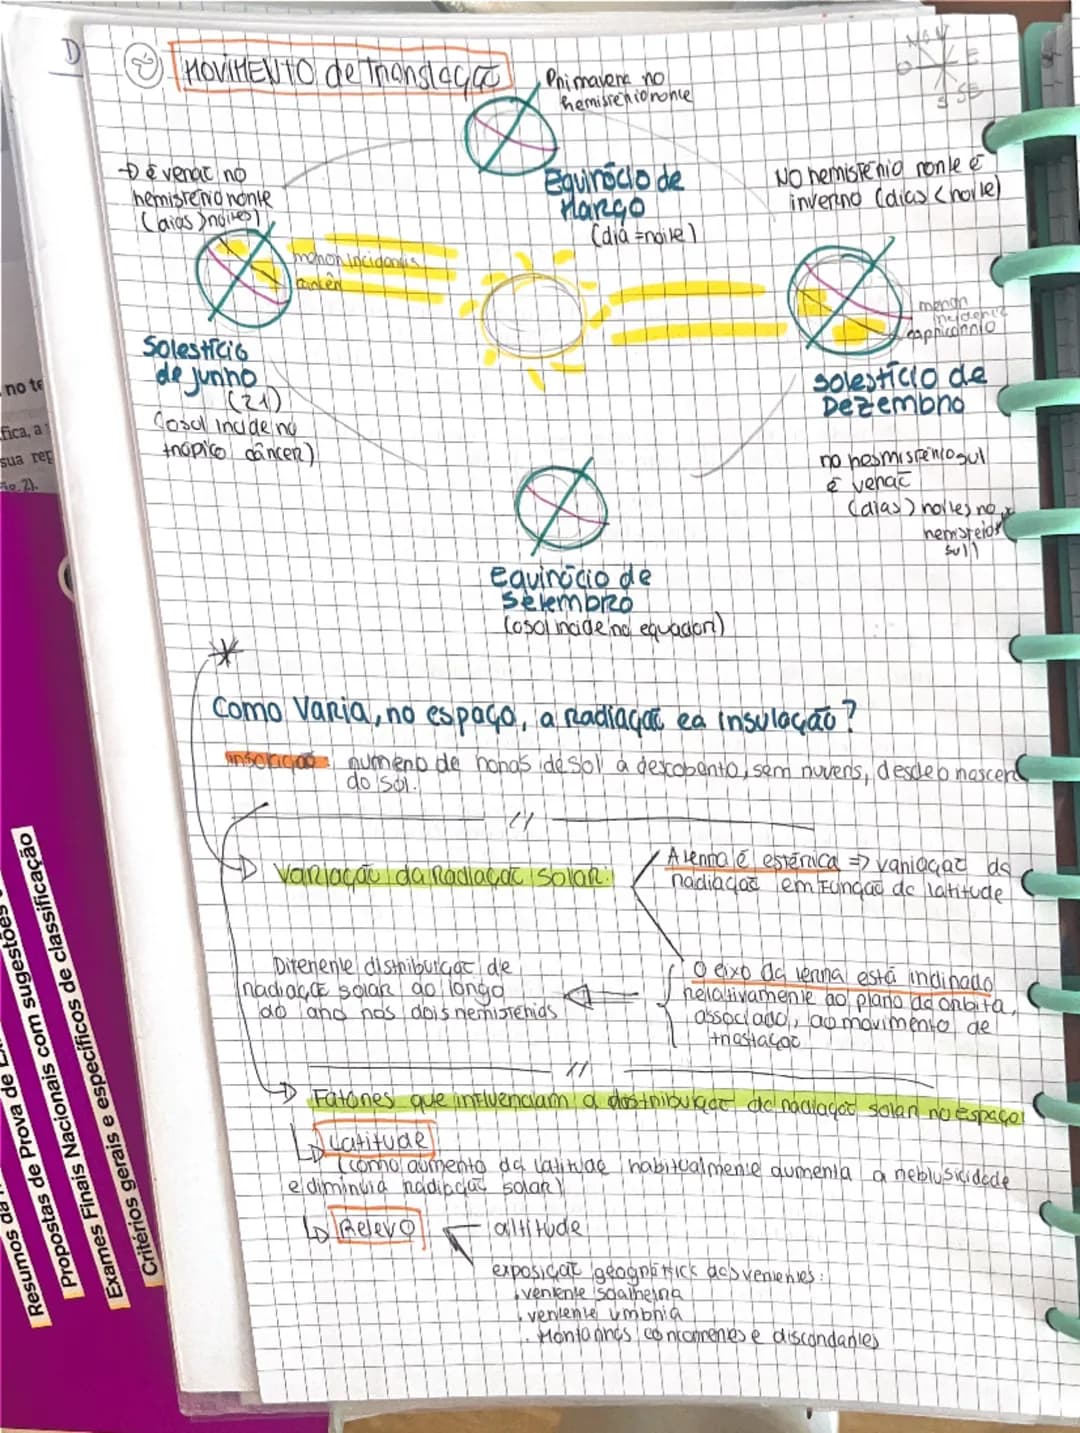 ② MOVIMENTO de Translação
Primavera no
hemisfério norte
N
E
O
S SE
→ é verão no
hemisfério norte
(dias > noites)
Equinócio de
Março
(dia = noite)
No hemisfério norte é
inverno (dias < noite)
menor incidência
menor
incidência
capricórnio
Solestício
de junho
(21)
(o sol incide no
trópico câncer)
solestício de
Dezembro
no hesmisfério sul
é verão
(dias > noites no
sul)
Equinócio de
Setembro
(o sol incide no equador)
*
Como Varia, no espaço, a radiação e a insulação?
insolação número de horas de sol a descoberto, sem nuvens, desde o nascer
do sol.
//
→ Variação da Radiação Solar:
A terra é esférica => variação da
radiação em função da latitude
O eixo da terra está inclinado
relativamente ao plano da órbita,
associado, ao movimento de
Diferente distribuição de
radiação solar ao longo
do ano nos dois hemisférios
//
→ Fatores que influenciam a distribuição da radiação solar no espaço:
↳ Latitude
(com o aumento da latitude habitualmente aumenta a neblusicidade
e diminui a radiação solar)
↳ Relevo
altitude
exposição geográfica das vertentes:
. vertente soalheira
. vertente umbria
. Montanhas concorrentes e discordantes
no te
fica, a
sua rep
Resumos da
Propostas de Prova de E
Exames Finais Nacionais com sugestões
Critérios gerais e específicos de classificação